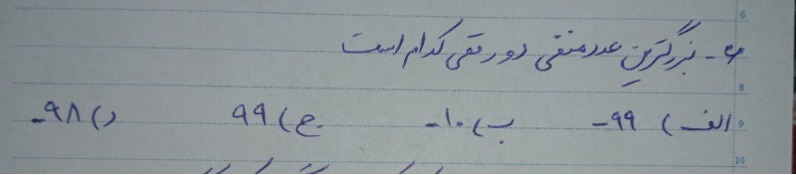 6
۶- بزرگترین عدد منفی دو رقمی کدام است
8
الف) ۹۹- ب) ۱۰- ج) ۹۹ د) ۹۸-
9
10